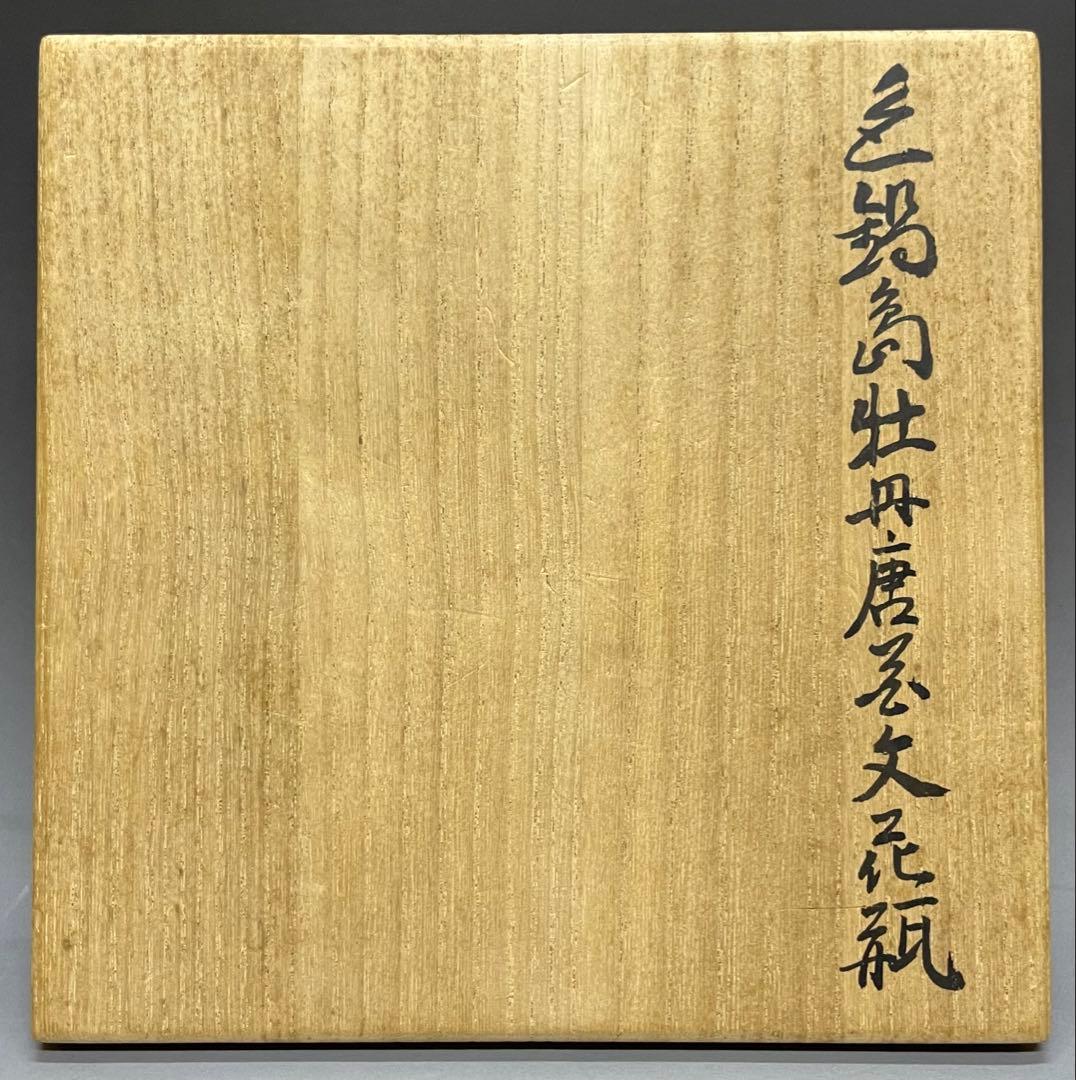 色鍋島牡丹唐花文花瓶